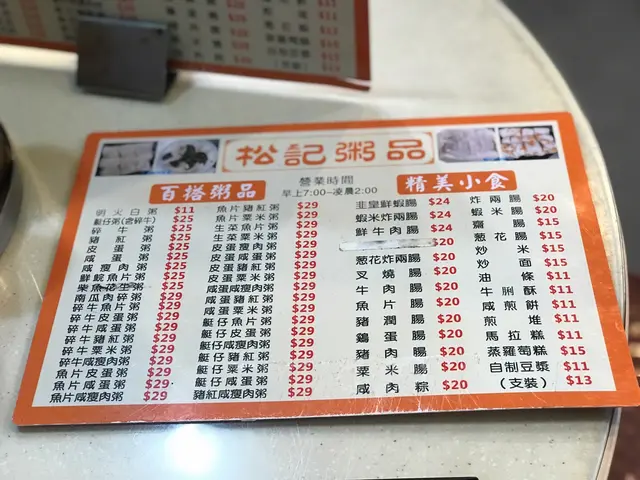 松記粥品
營業時間
早上7:00-凌晨2:00
百搭粥品
明火白粥 $11
艇仔粥(含碎牛) $25
碎牛粥 $25
豬紅粥 $25
皮蛋粥 $25
咸蛋粥 $25
咸瘦肉粥 $25
鮮鯇魚片粥 $25
柴魚花生粥 $25
南瓜肉碎粥 $29
碎牛魚片粥 $29
碎牛皮蛋粥 $29
碎牛咸蛋粥 $29
碎牛粟米粥 $29
碎牛咸瘦肉粥 $29
魚片皮蛋粥 $29
魚片咸蛋粥 $29
魚片咸瘦肉粥 $29
魚片豬紅粥 $29
魚片粟米粥 $29
生菜魚片粥 $29
生菜粟米粥 $29
皮蛋瘦肉粥 $29
皮蛋咸蛋粥 $29
皮蛋豬紅粥 $29
咸蛋咸瘦肉粥 $29
咸蛋豬紅粥 $29
咸蛋粟米粥 $29
艇仔魚片粥 $29
艇仔皮蛋粥 $29
艇仔豬紅粥 $29
艇仔粟米粥 $29
艇仔咸蛋粥 $29
艇仔咸瘦肉粥 $29
豬紅咸瘦肉粥 $29
精美小食
韭皇鮮蝦腸 $24
蝦米炸兩腸 $24
鮮牛肉腸 $24
$20
蔥花炸兩腸 $20
叉燒腸 $20
牛肉腸 $20
魚片腸 $20
豬潤腸 $20
鷄蛋腸 $20
豬肉腸 $20
粟米腸 $20
咸肉粽 $20
炸兩腸 $20
蝦米腸 $20
齋腸 $15
蔥花腸 $15
炒米 $15
炒面 $15
油條 $11
牛脷酥 $11
咸煎餅 $11
煎堆 $11
馬拉糕 $11
蒸蘿蔔糕 $15
自制豆漿 $11
(支裝) $13